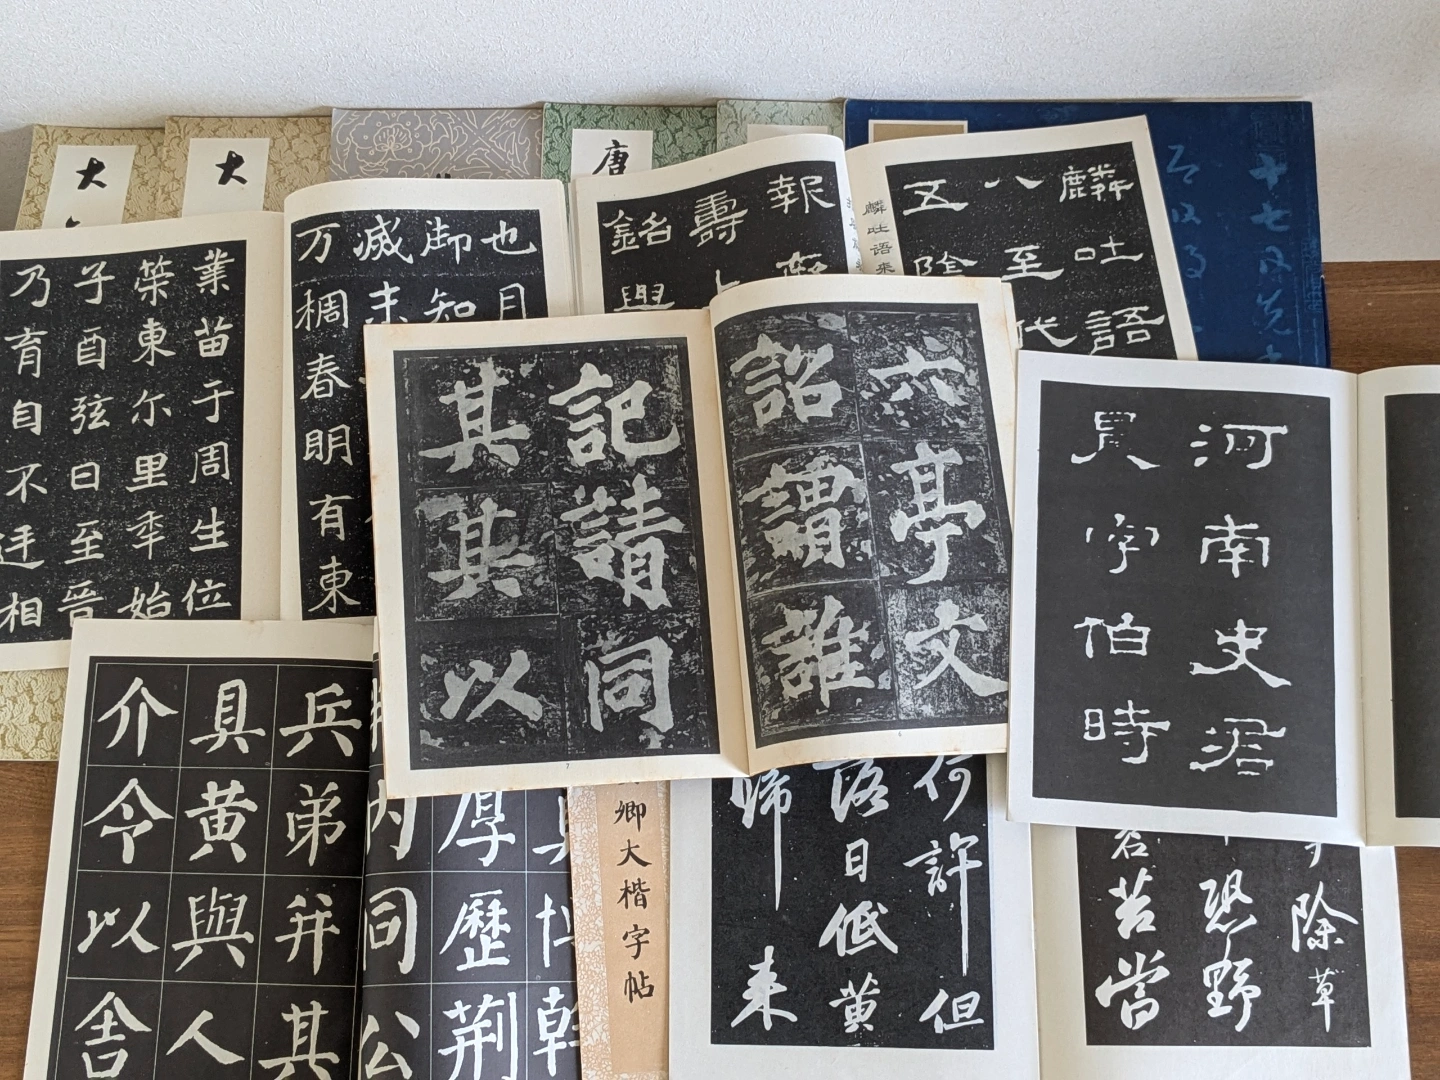 大
大
唐
麟吐語
八至代
五除
麟吐語来
報
壽
銘
也月
御知
滅末
万稠春明有東
業苗于周生位
築東尔里年始
子酉弦日至晉
乃育自不迁相
六亭文
詔謂誰
記請同
其其以
河南史君
字伯時
厚歷荆
内同公
兵弟并其
具黄與人
介令以舍
卿大楷字帖
何許但
落日低黄
歸来
除草
恐野
苦嘗